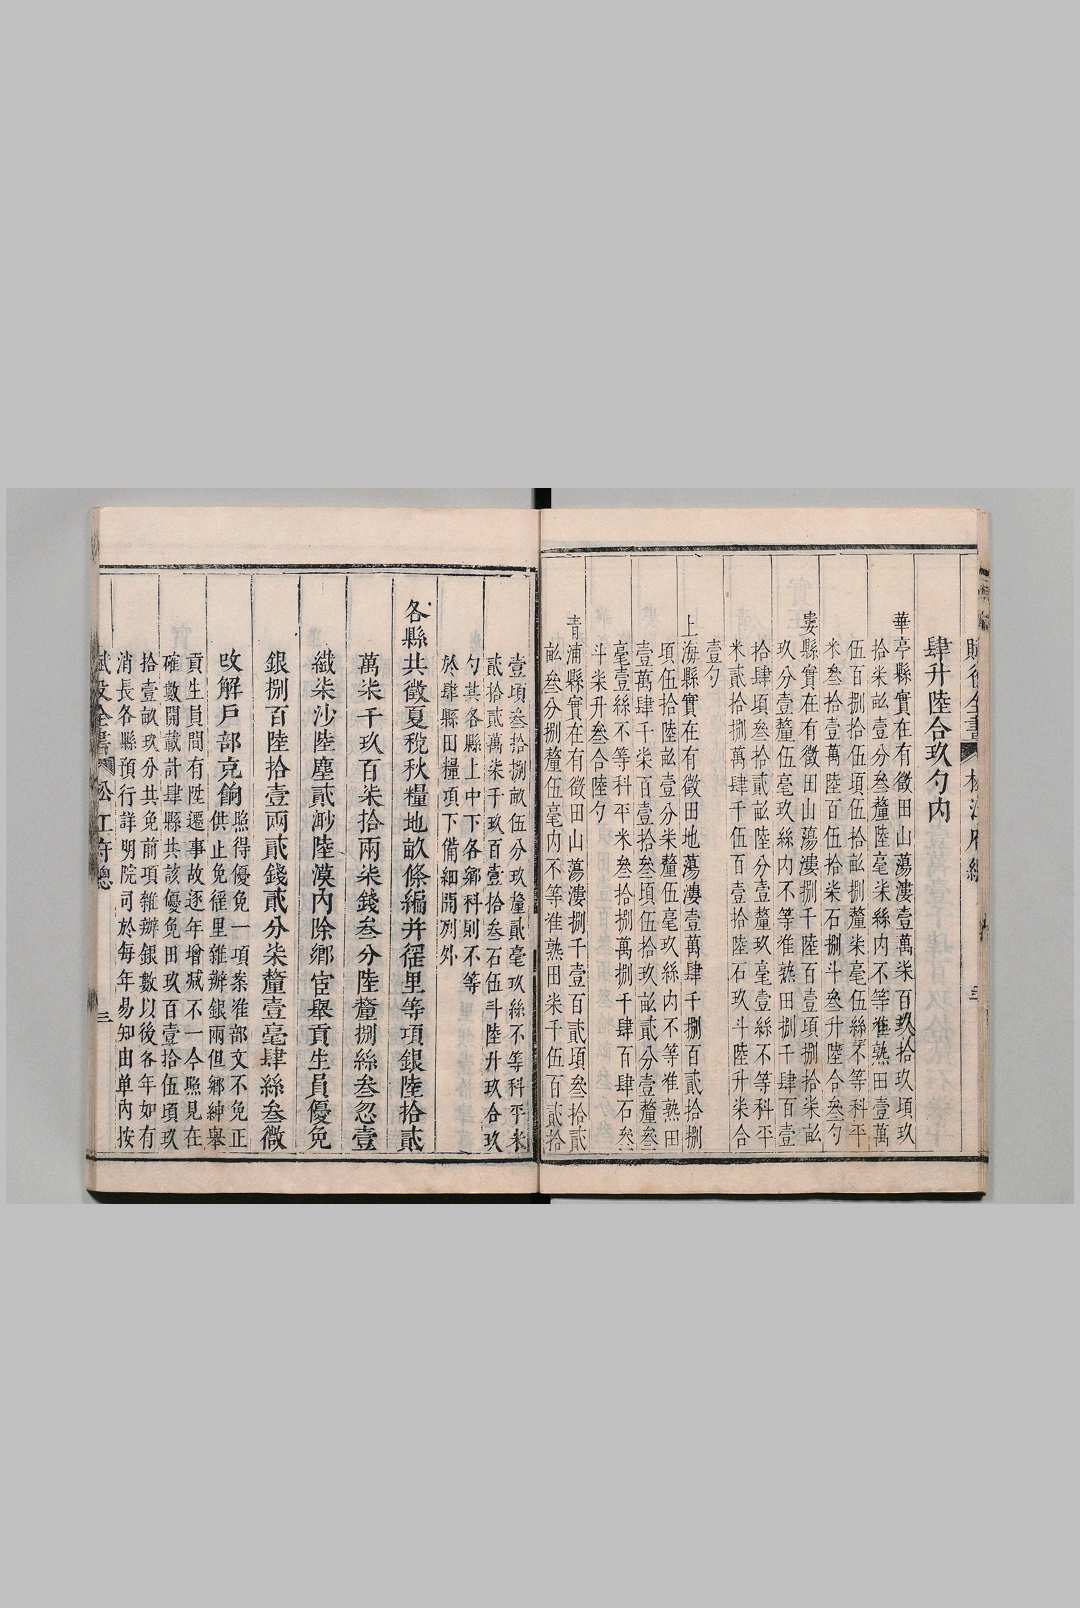 賦役全書 松江府總
肆升陸合玖勺內
華亭縣實在有徵田山蕩漊壹萬柒百玖拾玖頃玖
拾柒畝壹分叁釐陸毫柒絲內不等准熟田壹萬
伍百捌拾伍頃伍拾畝捌釐柒毫伍絲不等科平
米叁拾壹萬陸百伍拾柒石捌斗叁升陸合玖勺
婁縣實在有徵田山蕩漊捌千陸百壹頃捌拾柒畝
玖分壹釐伍毫玖絲內不等准熟田捌千肆百壹
拾肆頃叁拾貳畝陸分壹釐玖毫壹絲不等科平
米貳拾捌萬肆千伍百壹拾陸石玖斗陸升柒合
壹勺
上海縣實在有徵田地蕩漊壹萬肆千捌百貳拾捌
頃伍拾陸畝壹分柒釐伍毫玖絲內不等准熟田
壹萬肆千柒百壹拾叁頃伍拾玖畝貳分壹釐叁
毫壹絲不等科平米叁拾捌萬捌千肆百肆石叁
斗柒升叁合陸勺
青浦縣實在有徵田山蕩漊捌千壹百貳頃叁拾貳
畝叁分捌釐伍毫內不等准熟田柒千伍百貳拾
壹頃叁拾捌畝伍分玖釐貳毫玖絲不等科平米
貳拾貳萬柒千玖百壹拾叁石伍斗陸升玖合玖
勺其各縣上中下各鄉科則不等
於肆縣田糧項下備細開列外
各縣共徵夏稅秋糧地畝條編并徭里等項銀陸拾貳
萬柒千玖百柒拾兩柒錢叁分陸釐捌絲叁忽壹
纖柒沙陸塵貳渺陸漠內除鄉宦舉貢生員優免
銀捌百陸拾壹兩貳錢貳分柒釐壹毫肆絲叁微
改解戶部克餉 照得優免一項案准部文不免正
供止免徭里雜辦銀兩但鄉紳舉
貢生員間有陞遷事故逐年增減不一今照見在
確數開載計肆縣共該優免田玖百壹拾伍頃玖
拾壹畝玖分共免前項雜辦銀數以後各年如有
消長各縣預行詳明院司於每年易知由单內按
賦役全書 松江府總 三